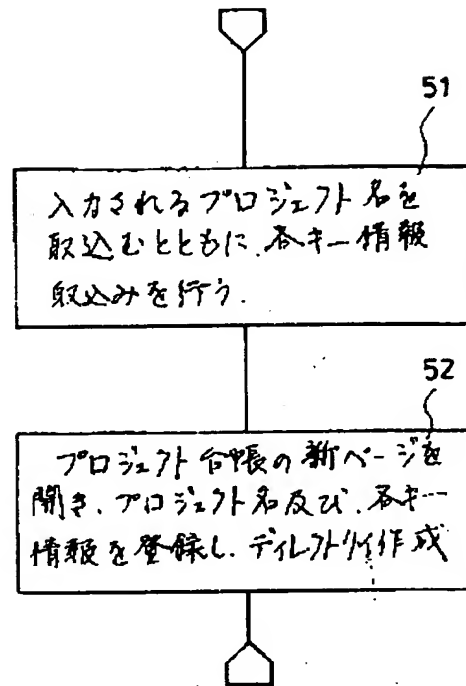 51
入力されるプロジェクト名を
取込むとともに、各キー情報
取込みを行う.
52
プロジェクト台帳の新ページを
開き、プロジェクト名及び、各キー
情報を登録し、ディレクトリイ作成